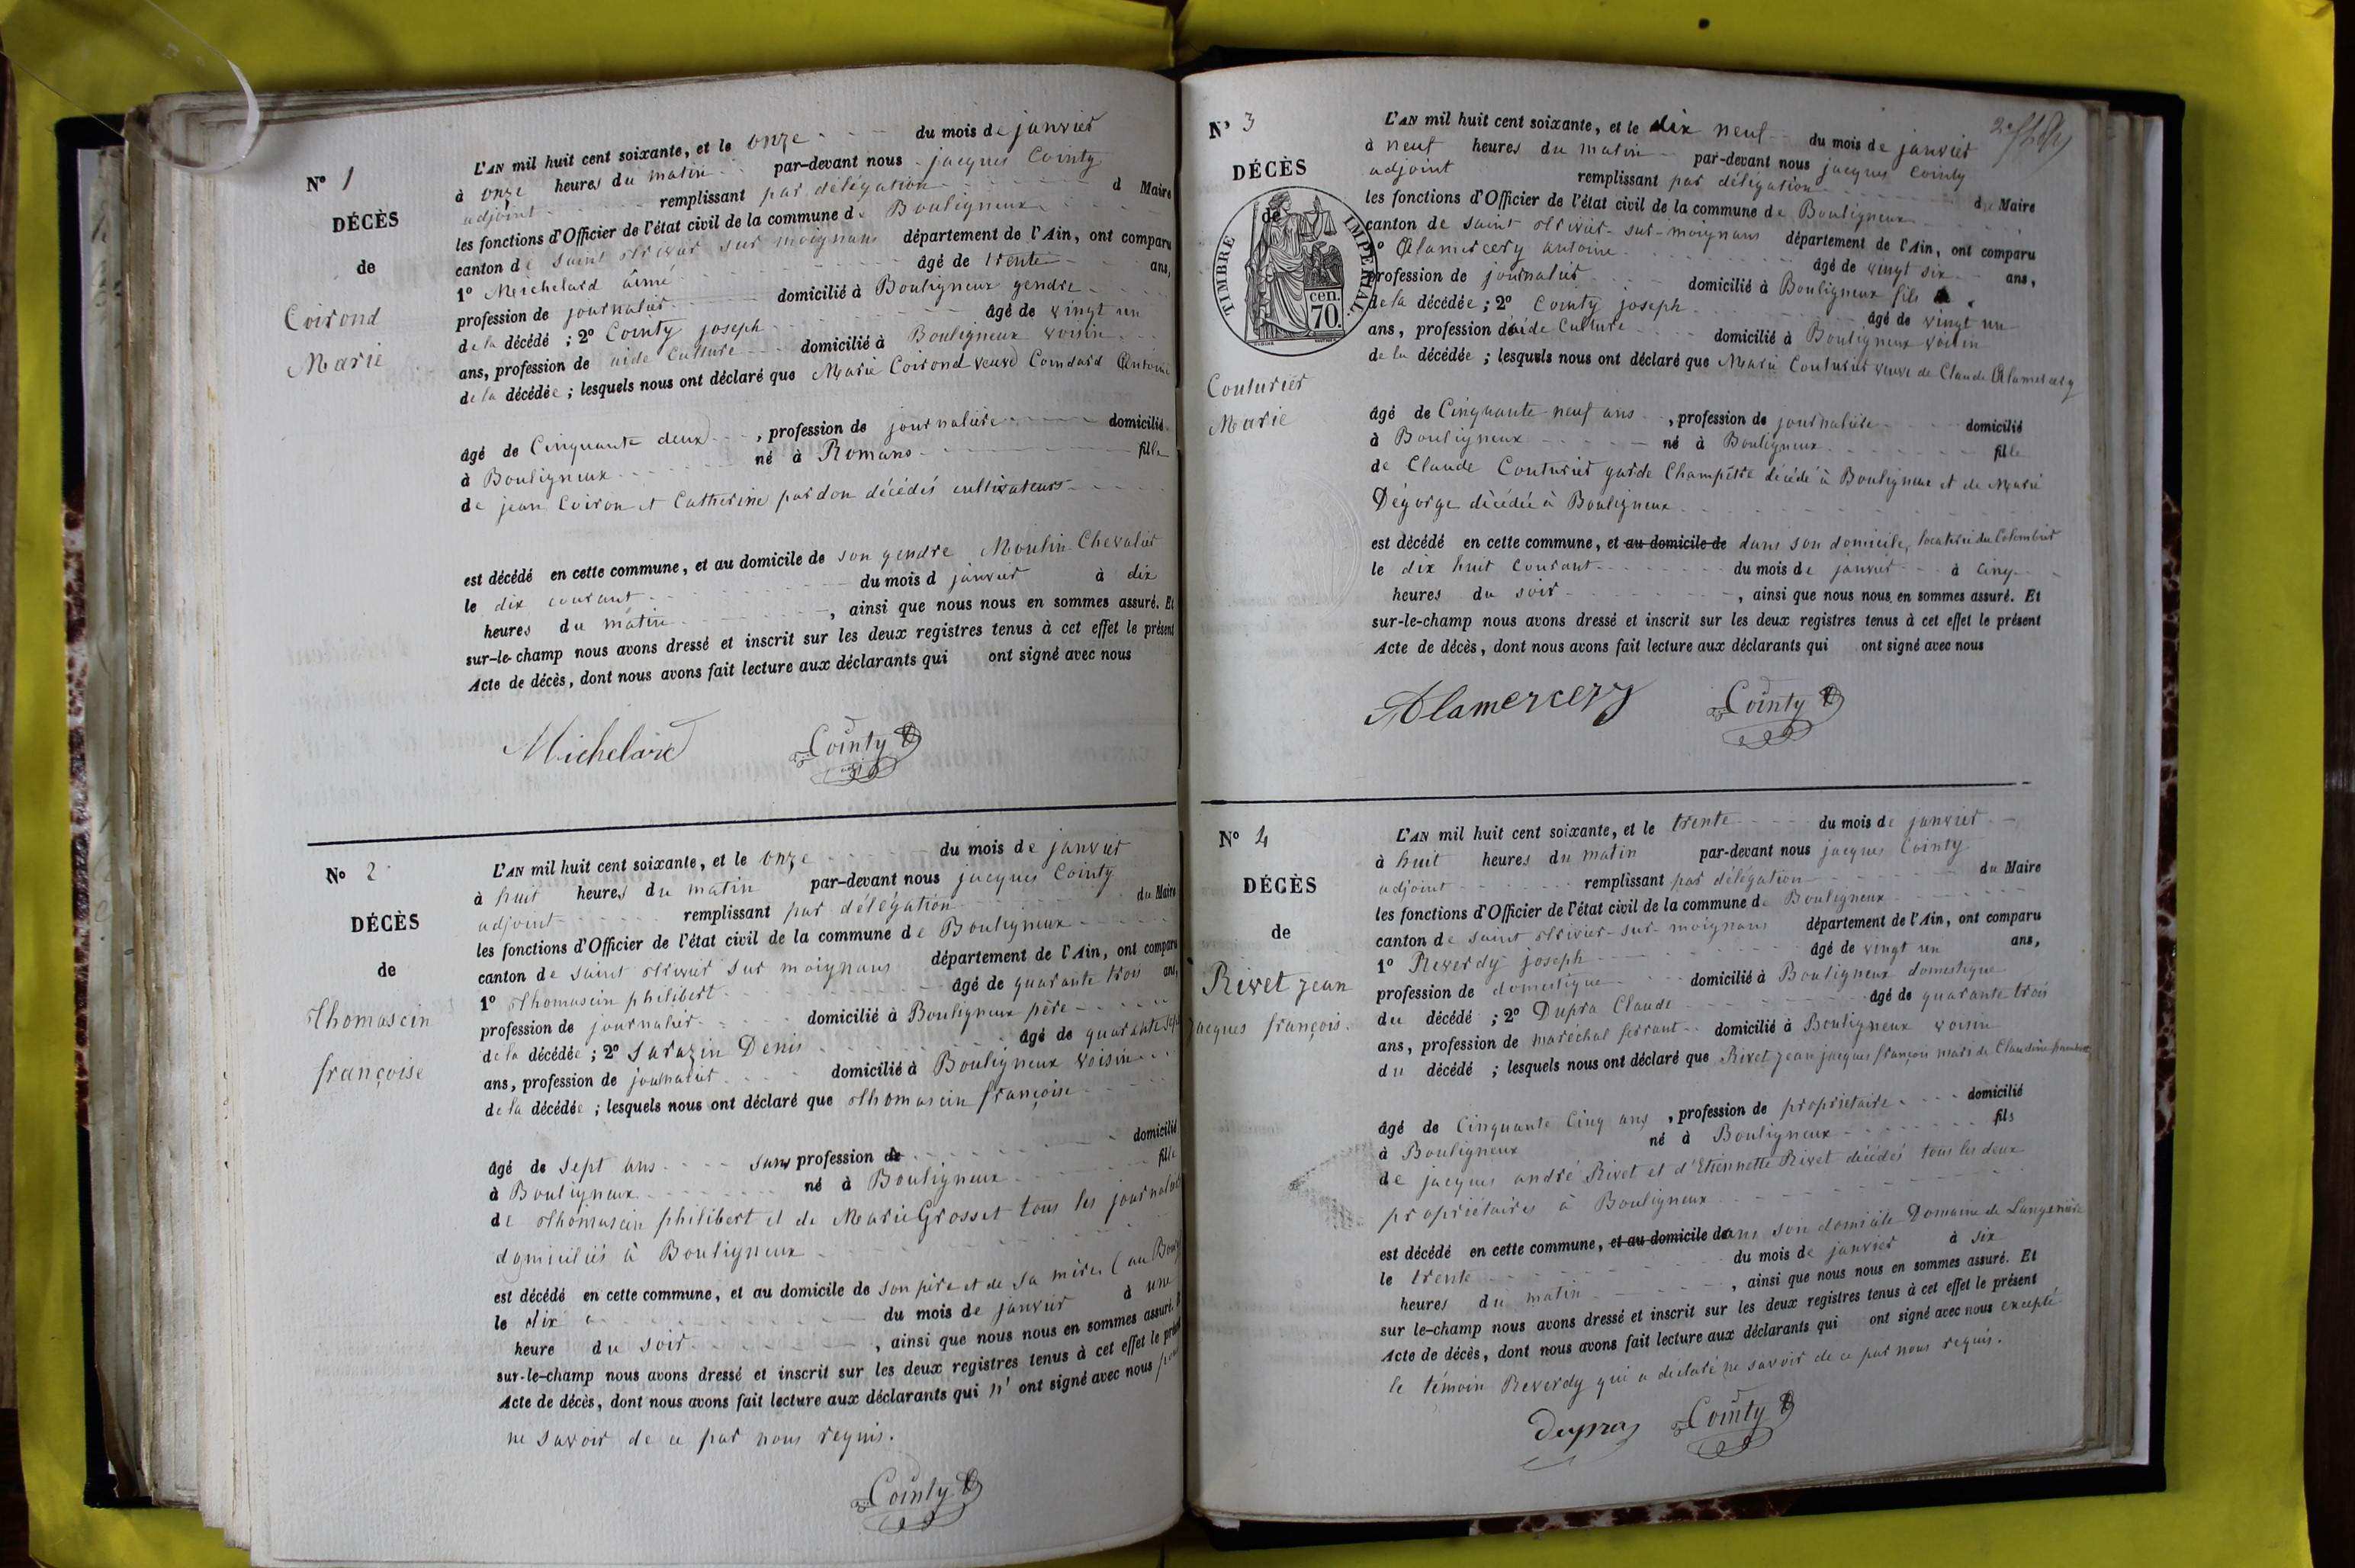 Nº 1
DÉCÈS
de
Coirond
Marie
L'AN mil huit cent soixante, et le onze du mois de janvier
à onze heures du matin par-devant nous jacques Cointy
adjoint remplissant par délégation d Maire
les fonctions d'Officier de l'état civil de la commune de Bouligneux
canton de saint trivier sur moignans département de l'Ain, ont comparu
1º Merchelard aimé âgé de trente ans,
profession de journalier domicilié à Bouligneux gendre
de la décédé ; 2º Cointy joseph âgé de vingt un
ans, profession de aide Culture domicilié à Bouligneux voisin
de la décédée ; lesquels nous ont déclaré que Marie Coirond veuve Antoine
âgé de Cinquante deux , profession de journalière domicilié
à Bouligneux né à Romans fille
de jean Coiron et Catherine pardon décédés cultivateurs
est décédé en cette commune, et au domicile de son gendre Moulin Chevalier
le dix courant du mois d janvier à dix
heures du matin , ainsi que nous nous en sommes assuré. Et
sur-le-champ nous avons dressé et inscrit sur les deux registres tenus à cet effet le présent
Acte de décès, dont nous avons fait lecture aux déclarants qui ont signé avec nous
Michelard Cointy
Nº 2
DÉCÈS
de
Thomasein
françoise
L'AN mil huit cent soixante, et le onze du mois de janvier
à huit heures du matin par-devant nous jacques Cointy
adjoint remplissant par délégation du Maire
les fonctions d'Officier de l'état civil de la commune de Bouligneux
canton de saint trivier sur moignans département de l'Ain, ont comparu
1º Thomasein philibert âgé de quarante trois ans,
profession de journalier domicilié à Bouligneux père
de la décédée ; 2º Sarazin Denis âgé de quarante sept
ans, profession de journalier domicilié à Bouligneux voisin
de la décédée ; lesquels nous ont déclaré que Thomasein françoise
âgé de sept ans sans profession de domicilié
à Bouligneux né à Bouligneux fille
de Thomasein philibert et de Marie Grosset tous les journaliers
domiciliés à Bouligneux
est décédé en cette commune, et au domicile de son père et de sa mère (au Bourg
le dix du mois de janvier à une
heure du soir , ainsi que nous nous en sommes assuré. Et
sur-le-champ nous avons dressé et inscrit sur les deux registres tenus à cet effet le présent
Acte de décès, dont nous avons fait lecture aux déclarants qui n'ont signé avec nous pour
ne savoir de ce par nous requis.
Cointy
Nº 3
DÉCÈS
de
TIMBRE IMPÉRIAL
cen.
70.
Couturier
Marie
L'AN mil huit cent soixante, et le dix neuf du mois de janvier
à neuf heures du matin par-devant nous jacques Cointy
adjoint remplissant par délégation du Maire
les fonctions d'Officier de l'état civil de la commune de Bouligneux
canton de saint trivier-sur-moignans département de l'Ain, ont comparu
1º Alamercery antoine âgé de vingt six ans,
profession de journalier domicilié à Bouligneux fils
de la décédée ; 2º Cointy joseph âgé de vingt un
ans, profession d'aide Culture domicilié à Bouligneux voisin
de la décédée ; lesquels nous ont déclaré que Marie Couturier veuve de Claude Alamercery
âgé de Cinquante neuf ans , profession de journalière domicilié
à Bouligneux né à Bouligneux fille
de Claude Couturier garde Champêtre décédé à Bouligneux et de Marie
Dégorge décédée à Bouligneux
est décédé en cette commune, et au domicile de dans son domicile, locaterie du Colombier
le dix huit courant du mois de janvier à cinq
heures du soir , ainsi que nous nous en sommes assuré. Et
sur-le-champ nous avons dressé et inscrit sur les deux registres tenus à cet effet le présent
Acte de décès, dont nous avons fait lecture aux déclarants qui ont signé avec nous
Alamercery Cointy
Nº 4
DÉCÈS
de
Rivet jean
jacques françois.
L'AN mil huit cent soixante, et le trente du mois de janvier
à huit heures du matin par-devant nous jacques Cointy
adjoint remplissant par délégation du Maire
les fonctions d'Officier de l'état civil de la commune de Bouligneux
canton de saint trivier-sur-moignans département de l'Ain, ont comparu
1º Reverdy joseph âgé de vingt un ans,
profession de domestique domicilié à Bouligneux domestique
du décédé ; 2º Dupra Claude âgé de quarante trois
ans, profession de maréchal ferrant domicilié à Bouligneux voisin
du décédé ; lesquels nous ont déclaré que Rivet jean jacques françois mari de Claudine
âgé de Cinquante Cinq ans , profession de proprietaire domicilié
à Bouligneux né à Bouligneux fils
de jacques andré Rivet et d'Etiennette Rivet décédés tous les deux
propriétaires à Bouligneux
est décédé en cette commune, et au domicile dans son domicile Domaine de
le trente du mois de janvier à six
heures du matin , ainsi que nous nous en sommes assuré. Et
sur le-champ nous avons dressé et inscrit sur les deux registres tenus à cet effet le présent
Acte de décès, dont nous avons fait lecture aux déclarants qui ont signé avec nous excepté
le témoin Reverdy qui a declaré ne savoir de ce par nous requis.
Dupras Cointy